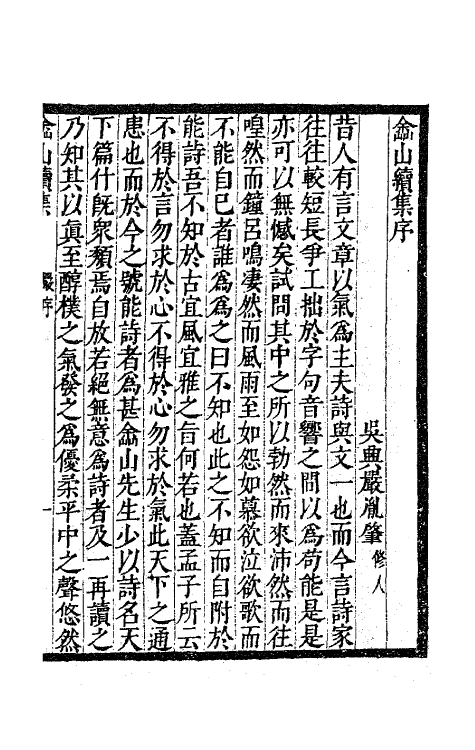 崙山續集序
吳興嚴胤肇 修人
昔人有言文章以氣爲主夫詩與文一也而今言詩家
往往較短長爭工拙於字句音響之間以爲苟能是是
亦可以無憾矣試問其中之所以勃然而來沛然而往
喤然而鐘呂鳴凄然而風雨至如怨如慕欲泣欲歌而
不能自已者誰爲爲之曰不知也此之不知而自附於
能詩吾不知於古宜風宜雅之旨何若也蓋孟子所云
不得於言勿求於心不得於心勿求於氣此天下之通
患也而於今之號能詩者爲甚崙山先生少以詩名天
下篇什旣衆頽焉自放若絕無意爲詩者及一再讀之
乃知其以眞至醇樸之氣發之爲優柔平中之聲悠然
崙山續集 嚴序 一